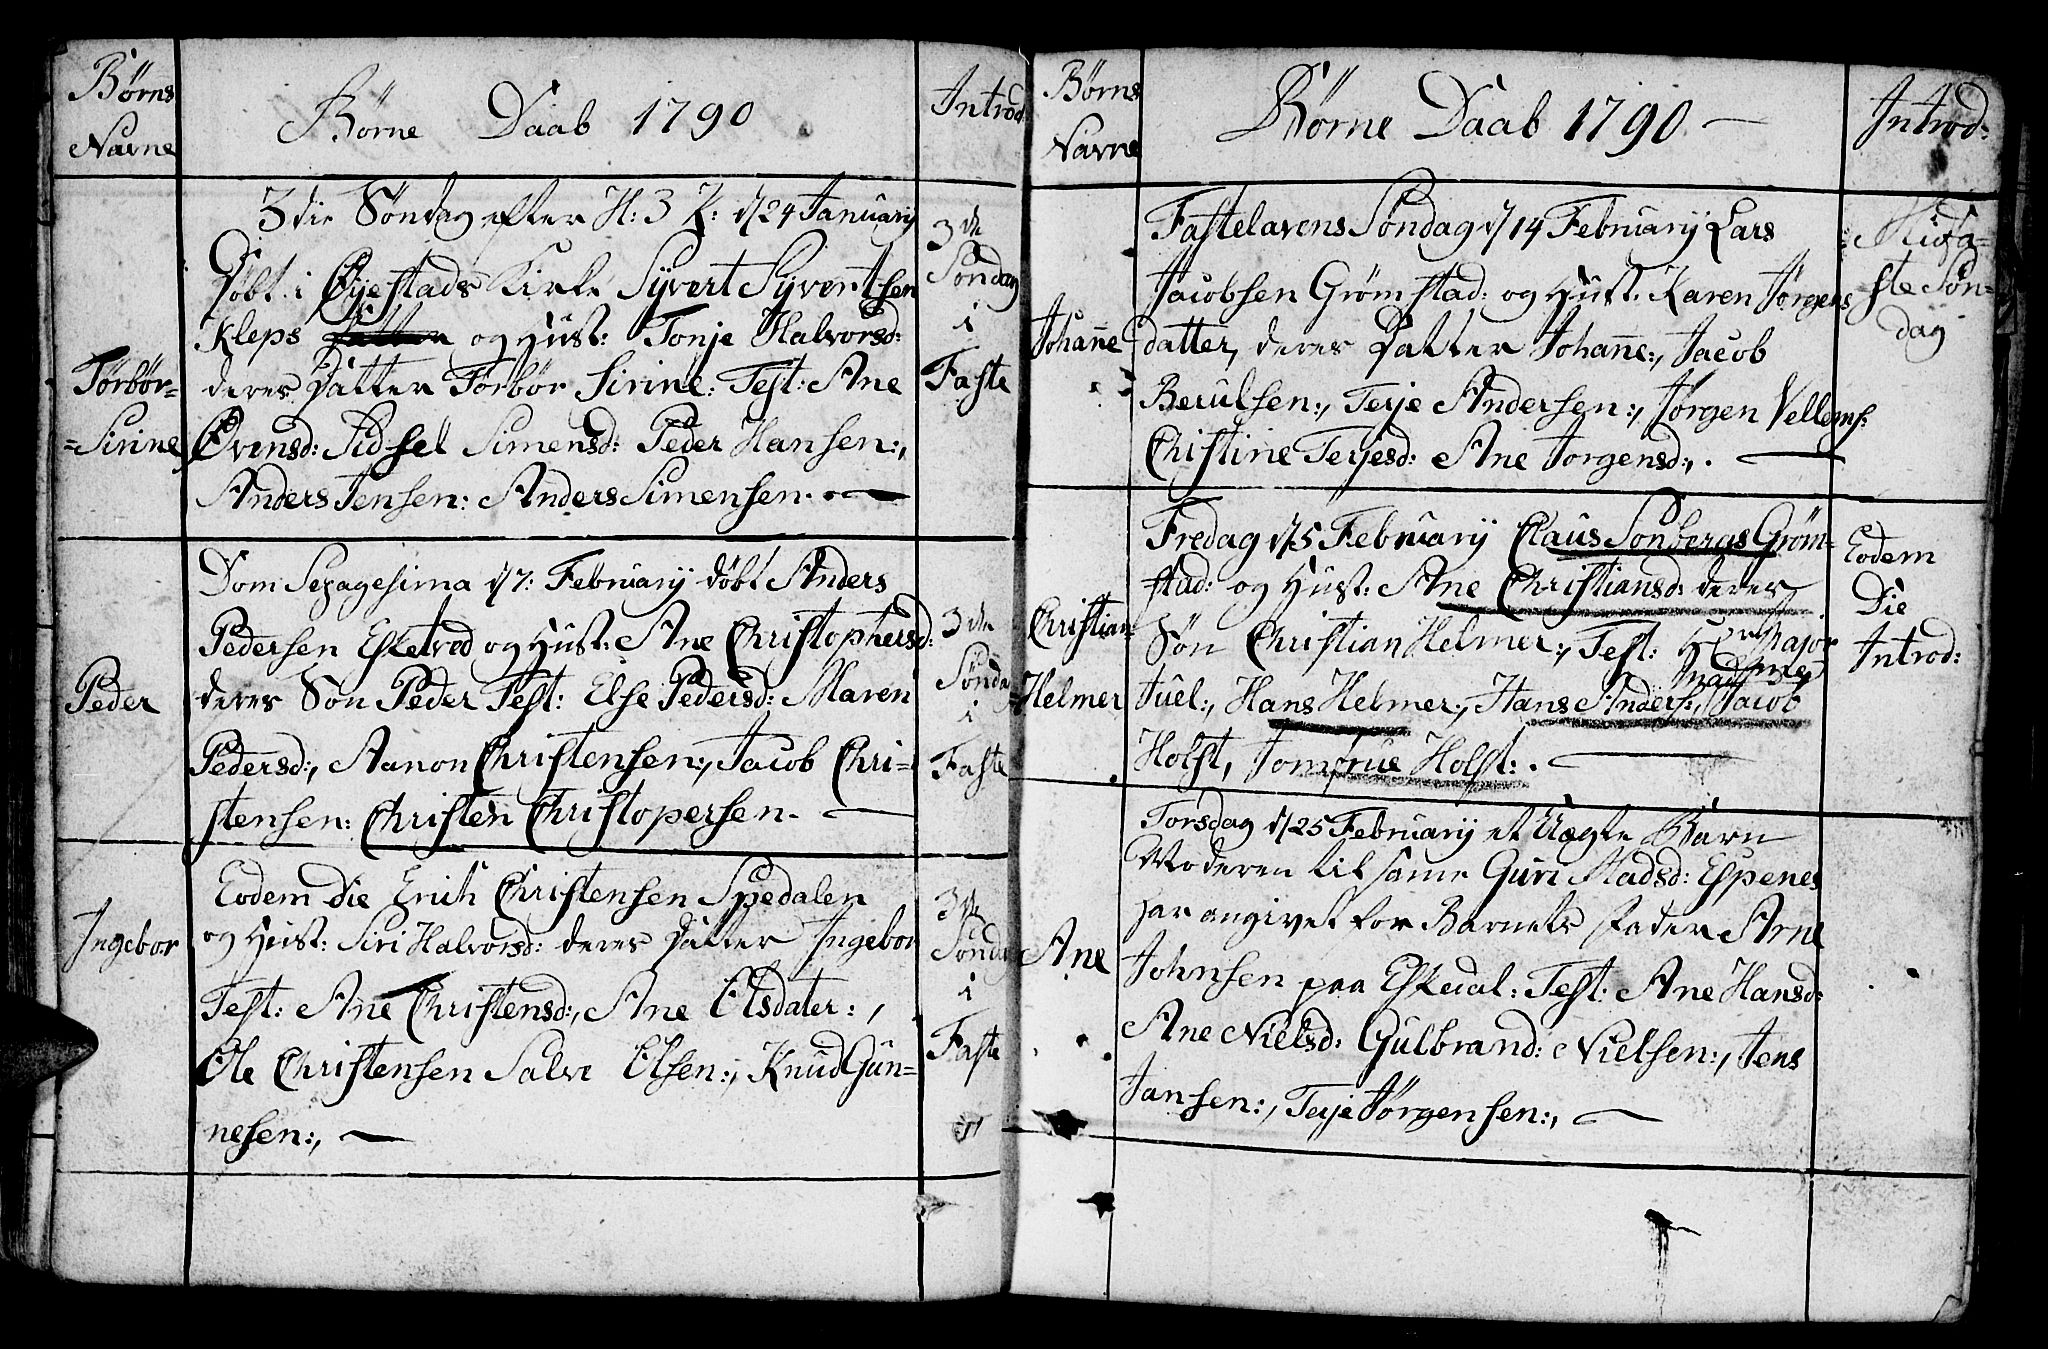 Børns
Navne
Børne Daab 1790
Introd
3die Søndag efter H: 3 K: d/24 Januarij
Døbt i Øyestads Kirke Syvert Syvertsen
Kleps og Hust: Tonje Halvorsd:
deres Datter Torbør Sirine: Test: Ane
Ovensd: Sidsel Simensd: Peder Hansen:,
Anders Jensen: Anders Simensen.
Torbør=
=Sirine
3die
Søndag
i
Faste
Dom Sexagesima d/7: Februarij døbt Anders
Pedersen Esketved og Hust: Ane Christophersd:
deres Søn Peder Test: Else Pedersd: Maren
Pedersd:, Aanon Christensen:, Jacob Chri=
stensen: Christen Christopersen.
Peder
3die
Sønda
i
Faste
Eodem Die Erich Christensen Spedalen
og Hust: Siri Halvorsd: deres Datter Ingebor
Test: Ane Christensd:, Ane Olsdater:,
Ole Christensen Salve Olsen:, Knud Gun=
nesen:,
Ingebor
3die
Sønda
i
Faste
Børns
Navne
Børne Daab 1790.
Introd:
Fastelavens Søndag d/14 Februarij Lars
Jacobsen Grømstad: og Hust: Karen Jørgens
datter, deres Datter Johanne:, Jacob
Berulsen:, Terje Andersen:, Jørgen Vellems:
Christine Terjesd: Ane Jorgensd:,.
Johanne
Midfa=
ste Søn=
dag
Fredag d/5 Februarij Claus Sonbergs Grøm=
stad: og Hust: Ane Christiansd: deres
Søn Christian Helmer:, Test: Hr Major
Juel:, Hans Helmer:, Hans Anders:, Jacob
Holst, Jomfrue Holst:.
Christian=
Helmer
Eodem
Die
Introd:
Torsdag d/25 Februarij et Uægte Barn
Moderen til same Guri Madsd: Espenes
har angivet for Barnets Fader Arne
Johnsen paa Eskedal: Test: Ane Hansd:
Ane Nielsd: Gulbrand: Nielsen:, Jens
Jansen:, Terje Jørgensen:,
Ane